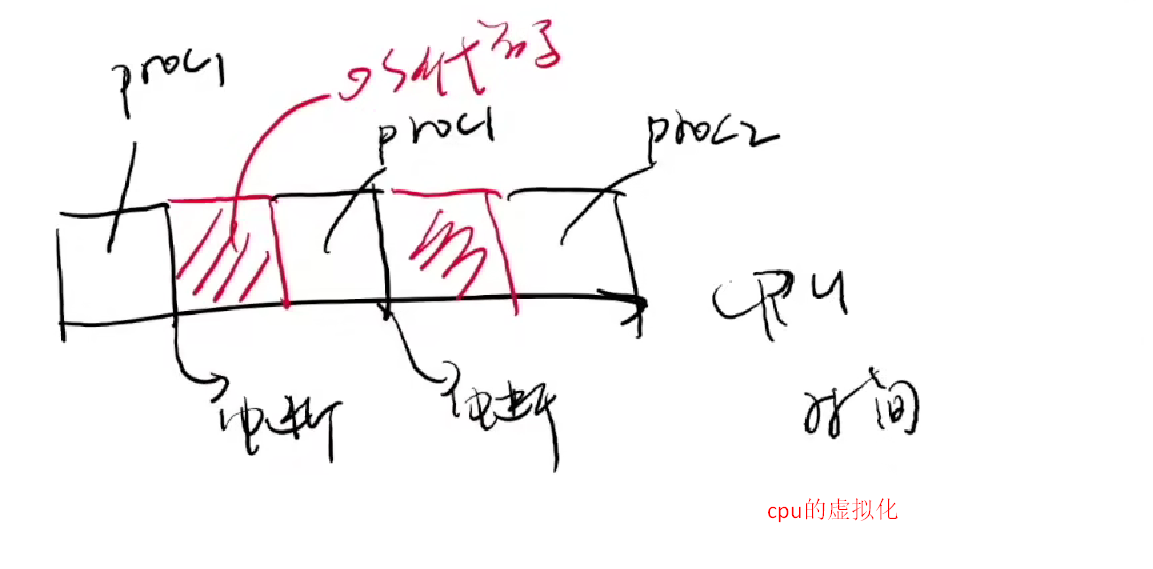 proc1
OS代码
proc1
proc2
CPU
时间
中断
中断
cpu的虚拟化